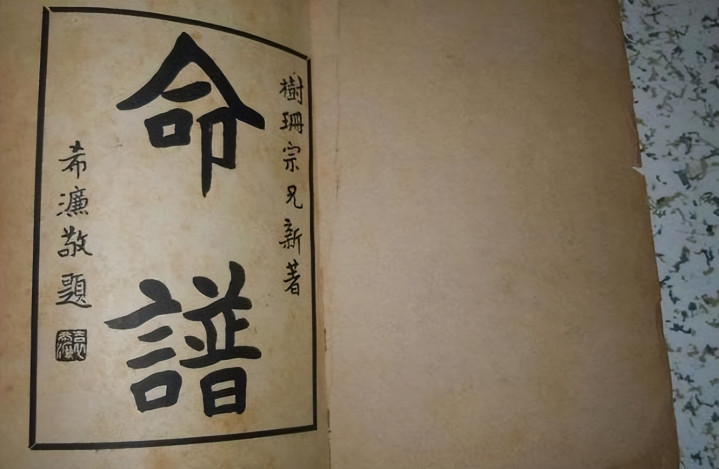 樹珊宗兄新著
命譜
希濂敬題